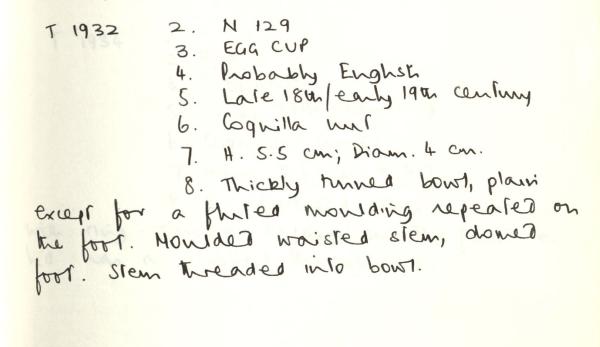 T 1932 2. N 129
3. EGG CUP
4. Probably English
5. Late 18th/early 19th century
6. Coquilla nut
7. H. 5.5 cm; Diam. 4 cm.
8. Thickly turned bowl, plain
except for a fluted moulding repeated on
the foot. Moulded waisted stem, domed
foot. Stem threaded into bowl.